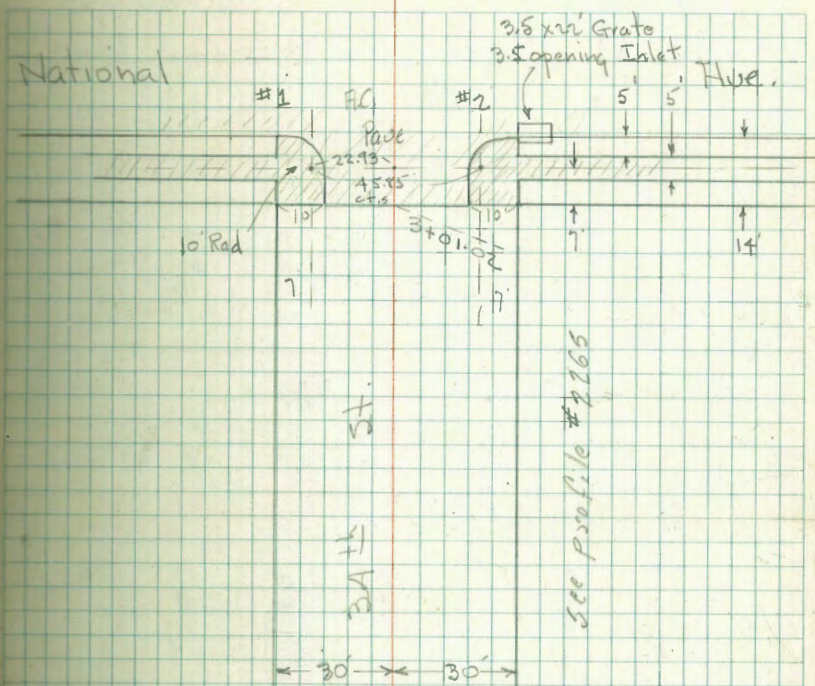 3.5 x 22' Grate
3.5 opening Inlet
National
Ave.
#1
A.C.
#2
5'
5'
Pave
22.93
45.85
cts
10
10
10' Rad
3+01.02
7'
14'
7
7'
34 th St.
See profile #2265
30'
30'